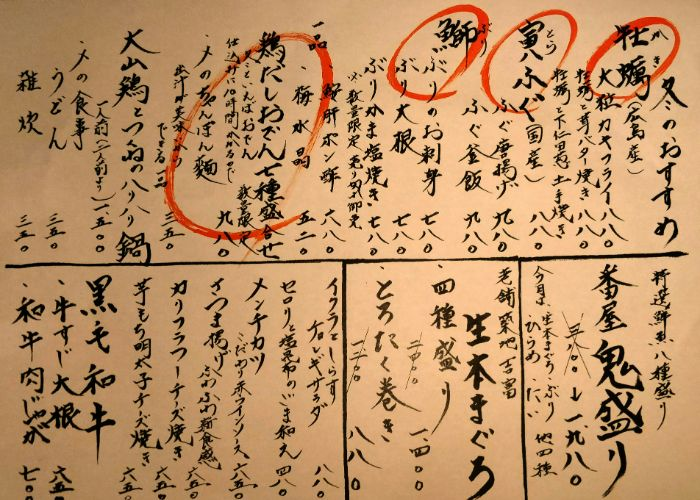 冬のおすすめ
かき
牡蠣(広島産)
大粒カキフライ 八八〇
牡蠣と茸バター焼き 八八〇
牡蠣と下仁田葱土手焼き 八八〇
とら
寅八ふぐ(国産)
ふぐ唐揚げ 九八〇
ふぐ釜飯 九八〇
ぶり
鰤
ぶりのお刺身 七八〇
ぶり大根 七八〇
ぶりかま塩焼き 七八〇
※数量限定売り切れ御免
一品
・鮟肝ポン酢 六八〇
・梅水晶 五二〇
鶏だしおでん七種盛合せ 九八〇
仕込みに10時間かかるのでし
数量限定
〆のちゃんぽん麺 三五〇
大山鶏とつくねのハリハリ鍋
一人前(二人前より) 一、五〇〇
〆の食事
うどん 三五〇
雑炊 三五〇
特選鮮魚八種盛り
番屋鬼盛り
↓一、九八〇
今日は、生本まぐろ、ぶり
ひらめ、たい 他四種
老舗築地 吉富
生本まぐろ
・四種盛り 一、四〇〇
・とろたく巻き 八八〇
イクラとしらす
チョレギサラダ 八八〇
セロリと塩昆布のごま和え 四八〇
メンチカツ
こだわり赤ワインソース 六五〇
さつま揚げ
ふわふわ新食感 六五〇
カリフラワーチーズ焼き 六五〇
芋もち明太子チーズ焼き 六五〇
黒毛和牛
・牛すじ大根 六五〇
・和牛肉じゃが 七〇〇